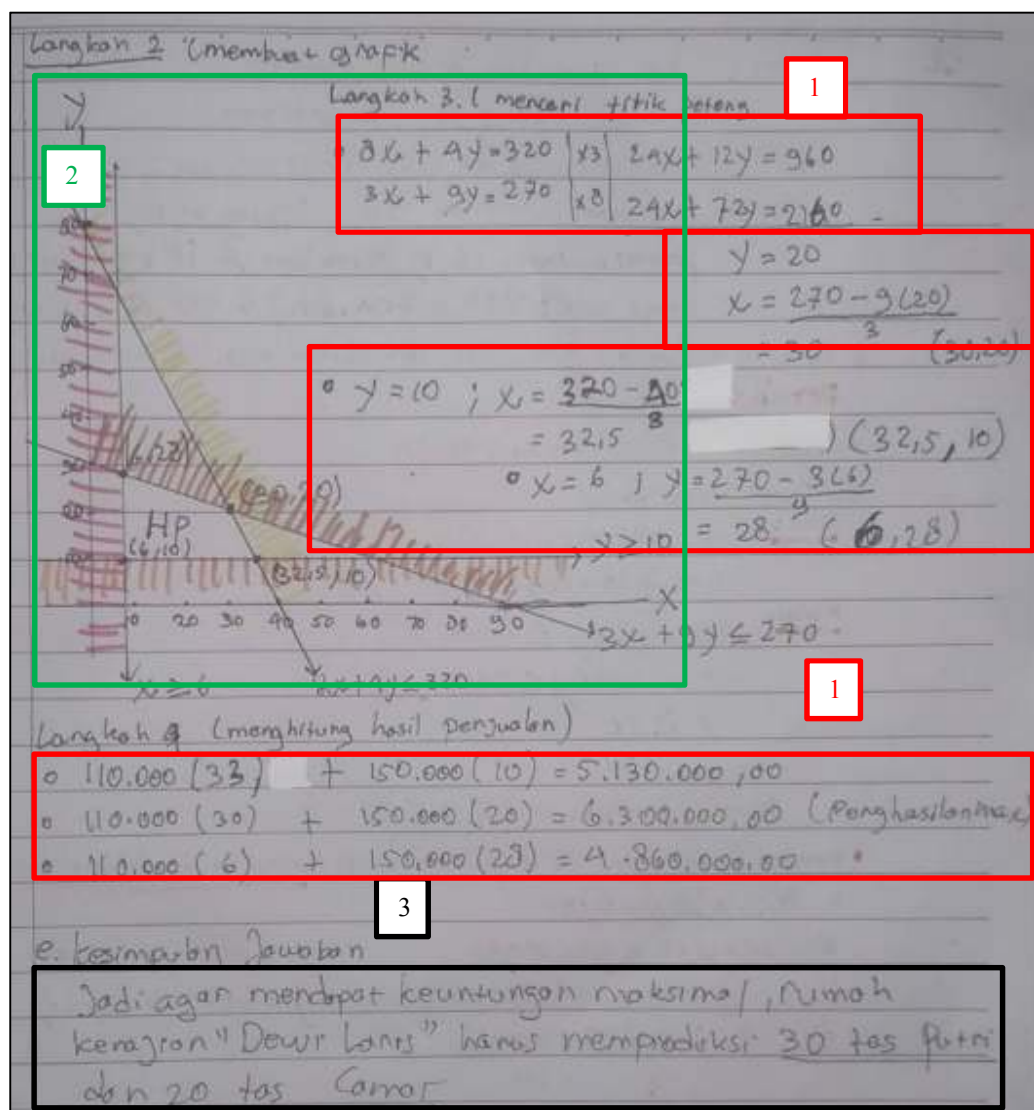 Langkah 2 (membuat grafik
Langkah 3. ( mencari titik potong
1
8x + 4y = 320 |x3| 24x + 12y = 960
3x + 9y = 270 |x8| 24x + 72y = 2160 -
2
y
y = 20
x = 270 - 9(20)
3
= 30 (30,20)
y = 10 ; x = 320 - 40
8
= 32,5 ) (32,5, 10)
x = 6 ; y = 270 - 3(6)
9
= 28 (6,28)
80
70
60
50
40
30
20
10
(6,28)
(30,20)
HP
(6,10)
(32,5,10)
y ≥ 10
x
10 20 30 40 50 60 70 80 90
3x + 9y ≤ 270
x ≥ 6 8x + 4y ≤ 320
1
Langkah 4 (menghitung hasil penjualan)
110.000 (33) + 150.000 (10) = 5.130.000,00
110.000 (30) + 150.000 (20) = 6.300.000,00 (Penghasilan max)
110.000 (6) + 150.000 (28) = 4.860.000,00
3
e. kesimpulan Jawaban
Jadi agar mendapat keuntungan maksimal, rumah
kerajian "Dewi Lanis" harus memproduksi 30 tas Putri
dan 20 tas Camar